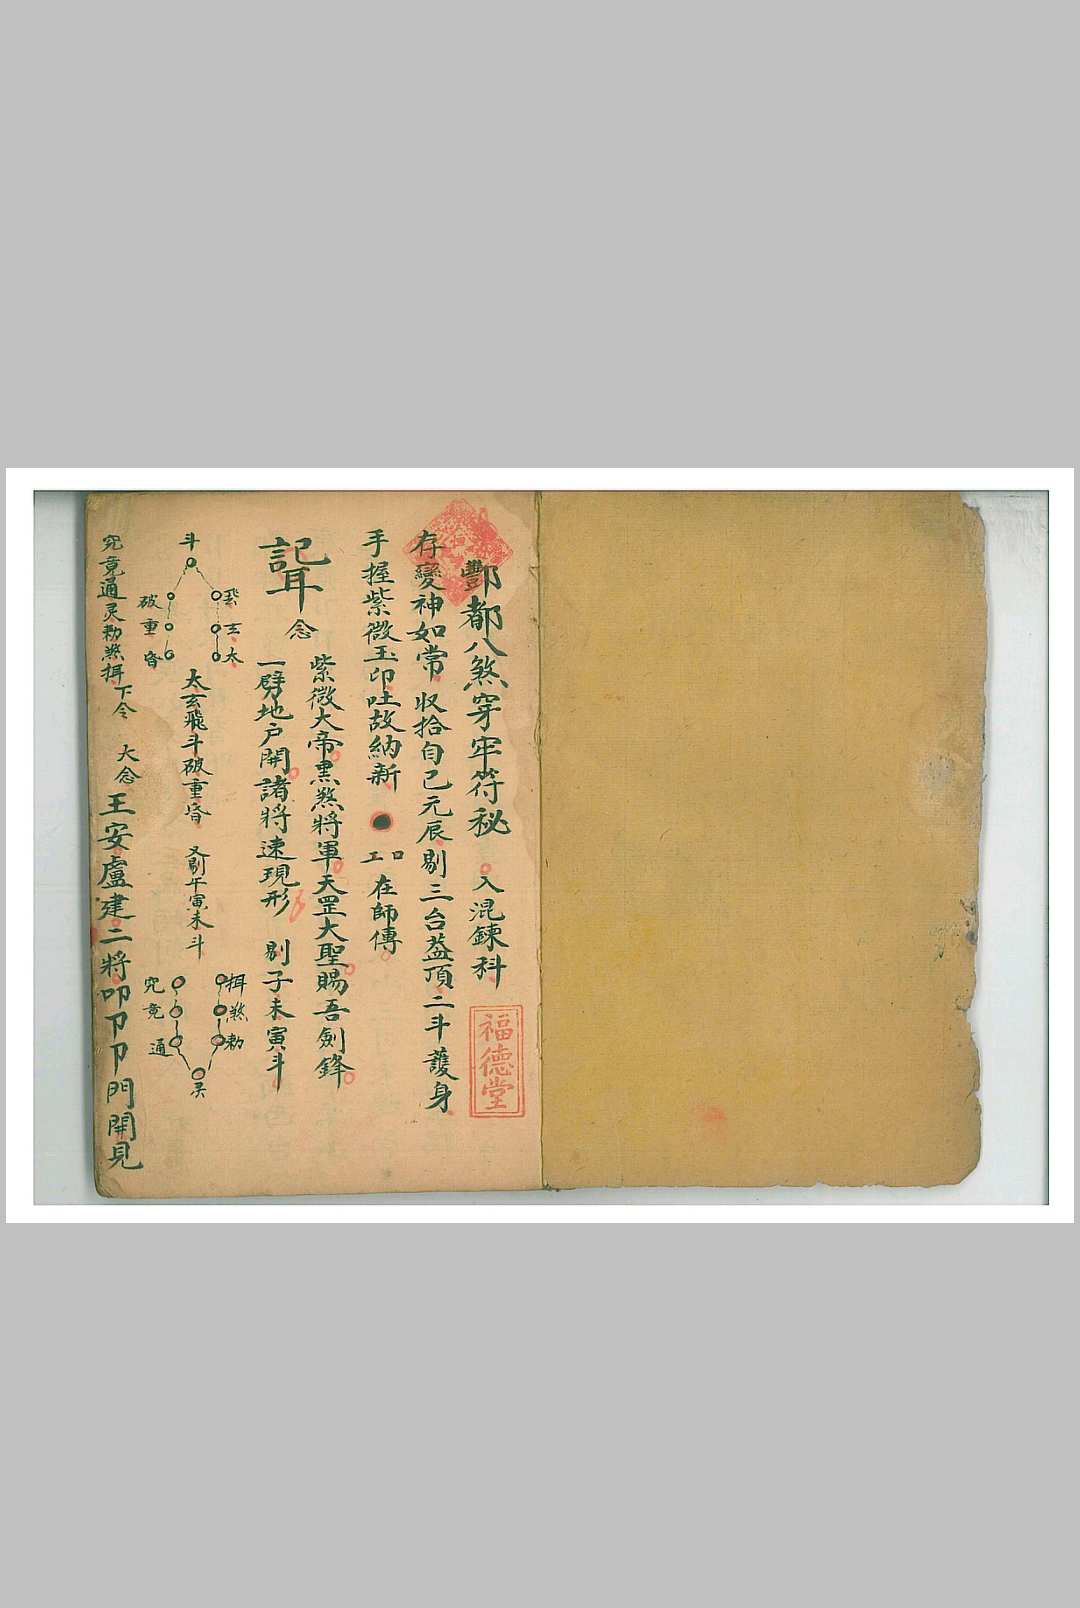 酆都八煞穿牢符秘 入混鍊科
福德堂
存變神如常 収拾自己元辰剔三台盖頂二斗護身
手握紫微玉印吐故納新 ● 工口在師傳
念
紫微大帝黑煞將軍天罡大聖賜吾劍鋒
一劈地戶開諸將速現形 剔子未寅斗
飛玄太
斗
破重昏
太玄飛斗破重昏 又剔午寅未斗
煞勑
究竟通
灵
究竟通灵勑煞 下令 大念
王安盧建二將叩卩卩門開見